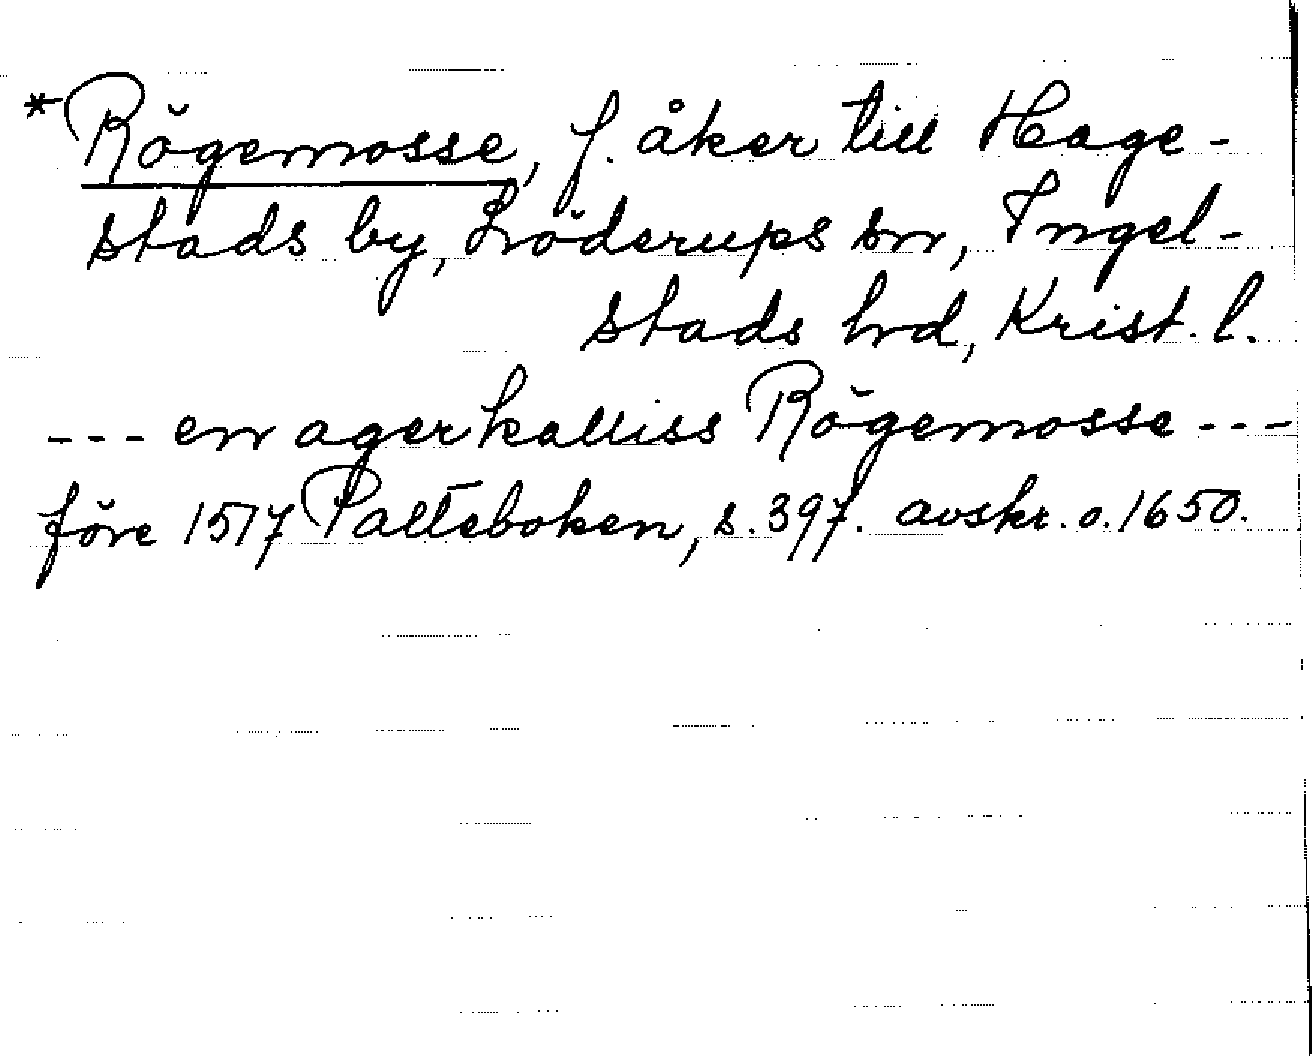 *Rögemosse, f. åker till Hage-
stads by, Löderups sn, Ingel-
stads hd, Krist. l.
--- en ager kalliss Rögemosse ---
före 1517 Palteboken, s. 397. avskr. o. 1650.